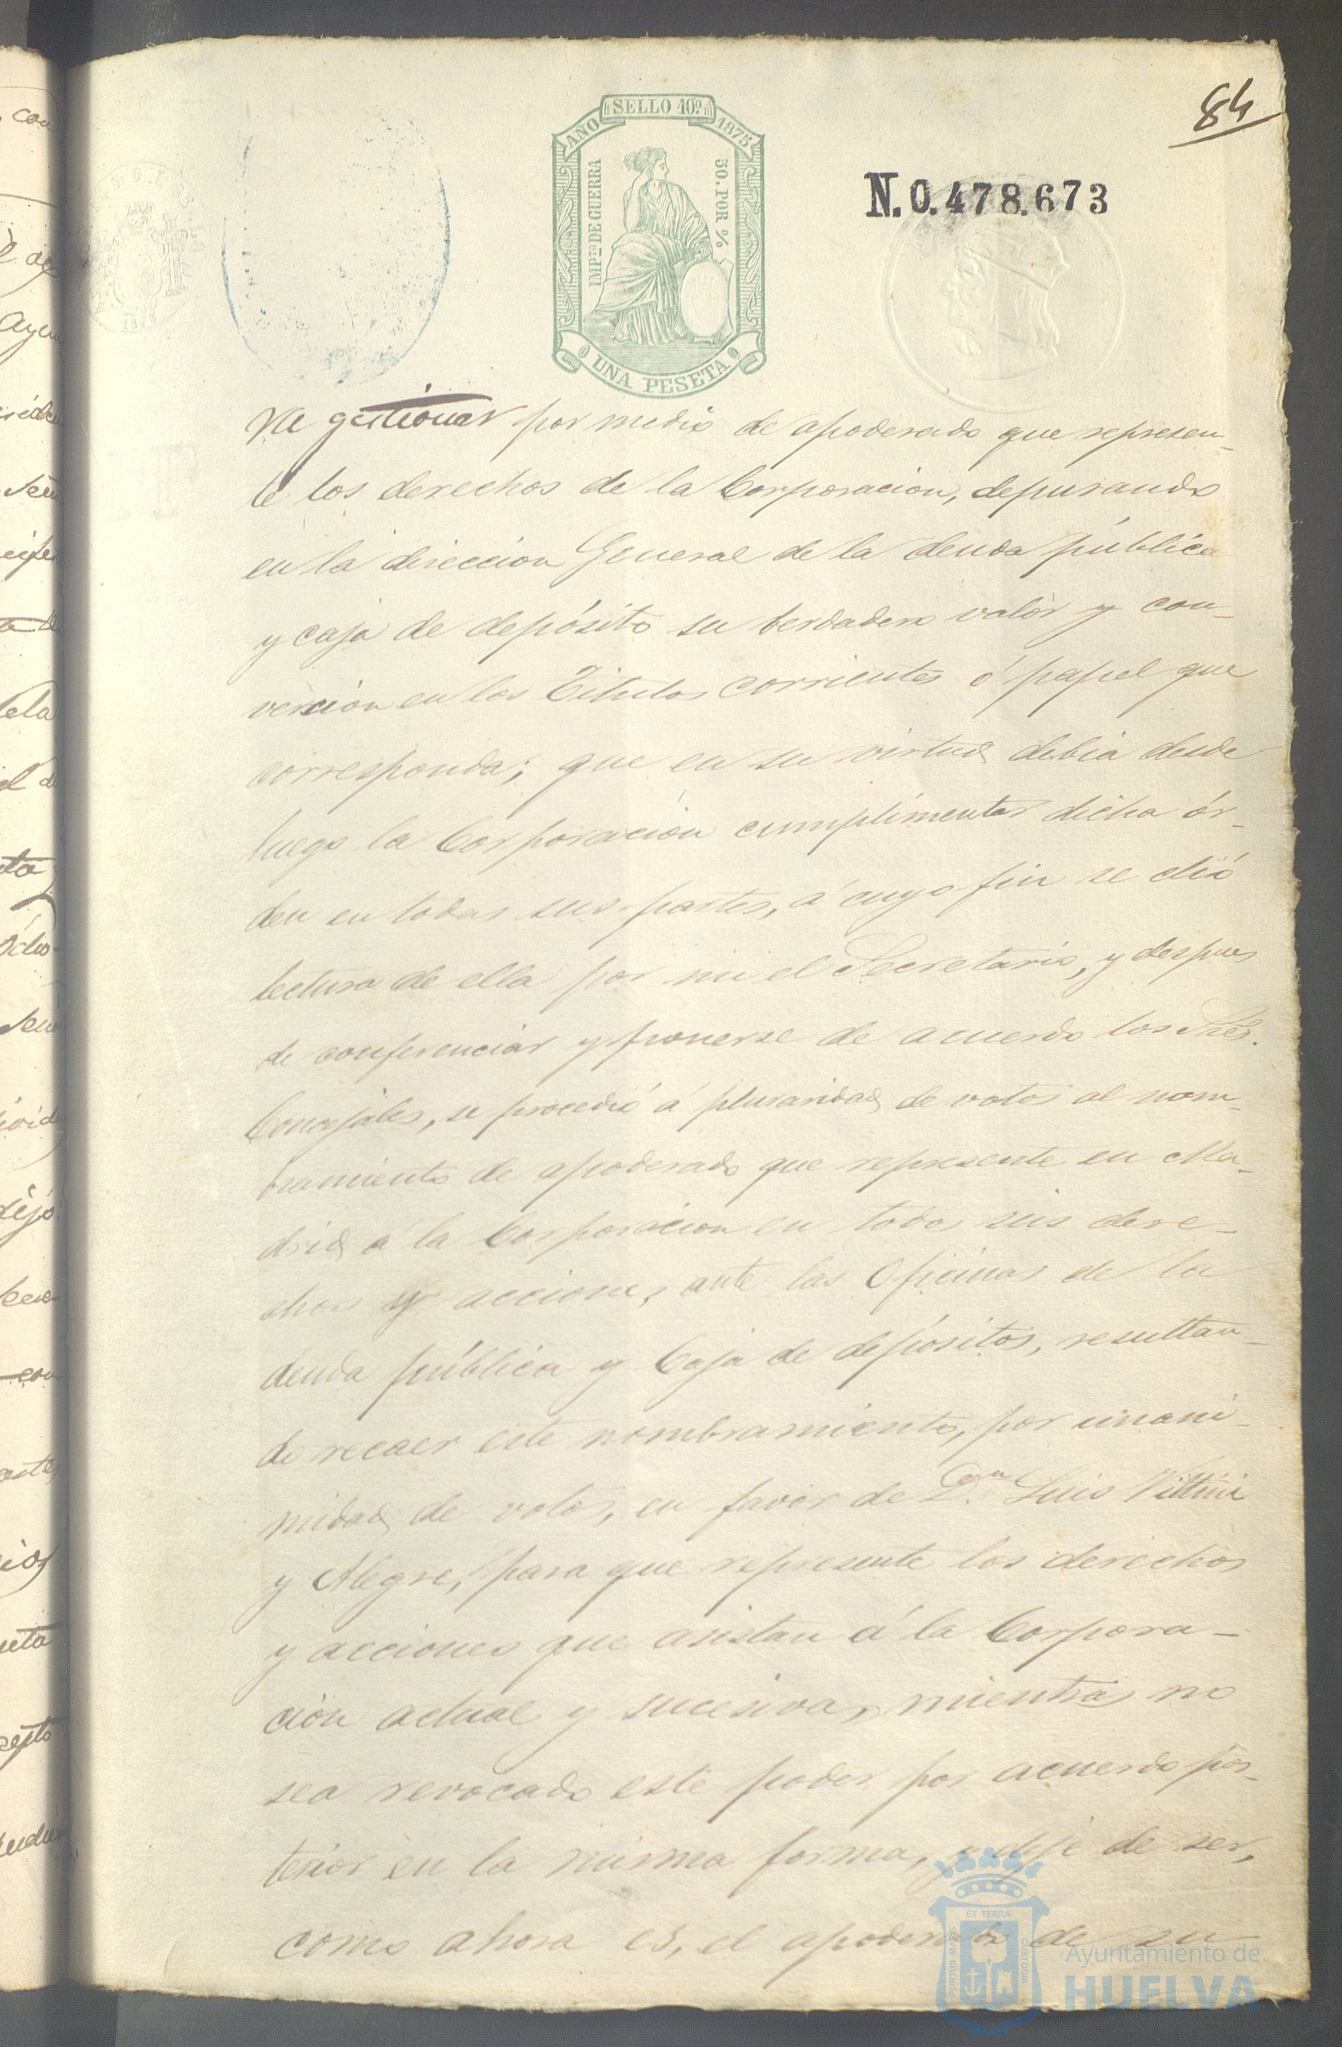 84
SELLO 10º
AÑO 1875
IMPTO DE GUERRA
50. POR %
UNA PESETA
N. 0.478.673
gestionar por medio de apoderado que represen-
te los derechos de la Corporacion, depurando
en la direccion General de la deuda pública
y caja de depósito su berdadero valor y con-
vercion en los Titulos corrientes ó papel que
corresponda; que en su virtud debia desde
luego la Corporación cumplimentar dicha ór-
den en todas sus partes, á cuyo fin se dió
lectura de ella por mi el Secretario, y despues
de conferenciar y ponerse de acuerdo los Sres.
Concejales, se procedió á pluraridad de votos al nom-
bramiento de apoderado que represente en Ma-
drid á la Corporacion en todos sus dere-
chos y acciones, ante las Oficinas de la
deuda pública y Caja de depósitos, resultan-
do recaer este nombramiento, por unani-
midad de votos, en favor de Dn. Luis Vittini
y Alegre, para que represente los derechos
y acciones que asistan á la Corpora-
ción actual y sucesiva, mientras no
sea revocado este poder por acuerdo pos-
terior en la misma forma, y deje de ser,
como ahora es, el apoderado de su
PORTUS MARIS
ET TERRÆ
CUSTODIA
Ayuntamiento de
HUELVA